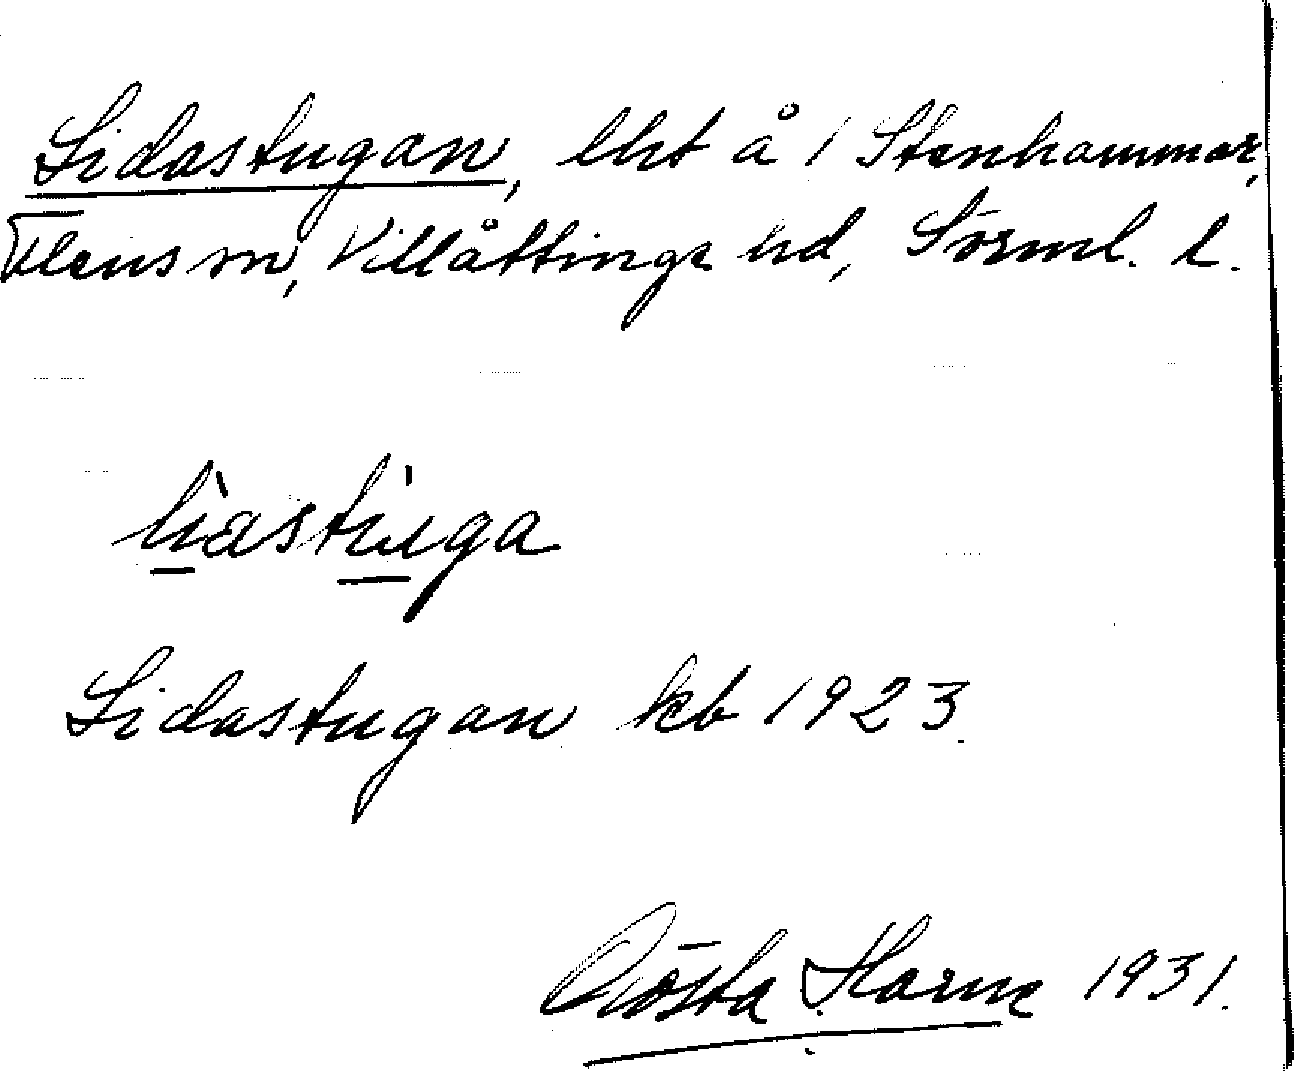 Lidastugan, lht å 1 Stenhammar,
Flens sn, Villåttinge hd, Sörml. l.
lìastúga
Lidastugan kb 1923.
Gösta Harne 1931.